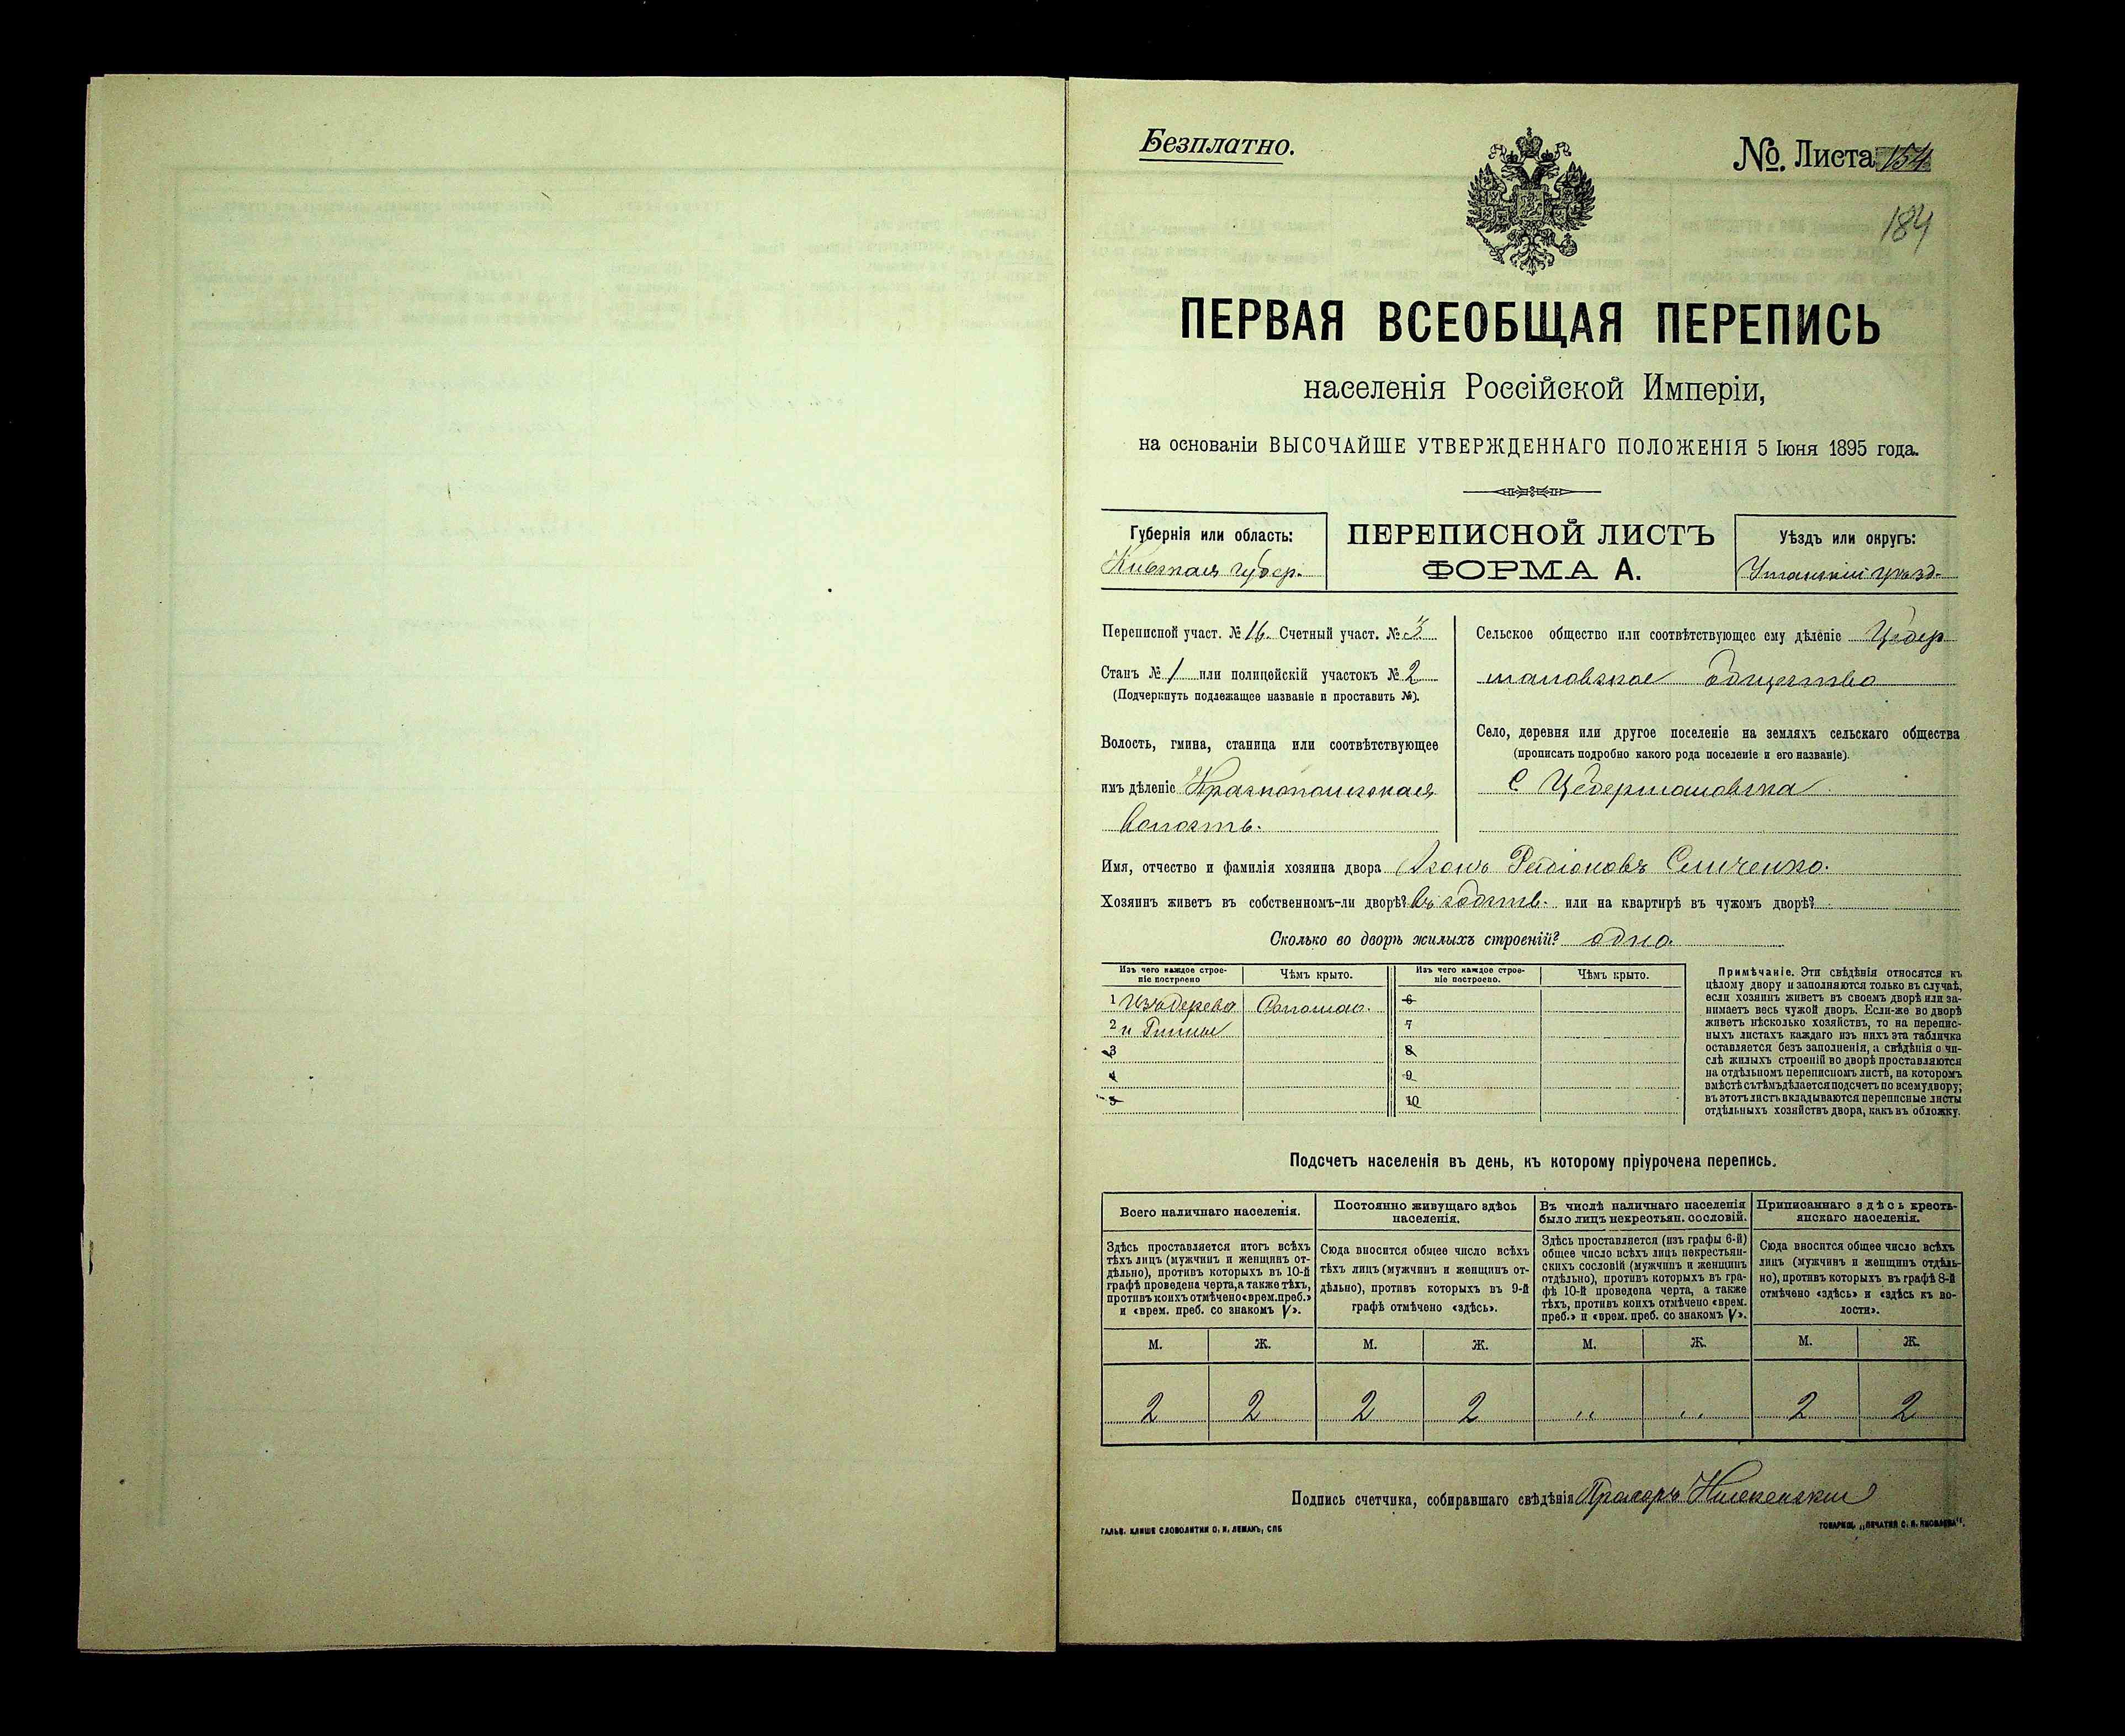 Безплатно.
№ Листа 154
184
ПЕРВАЯ ВСЕОБЩАЯ ПЕРЕПИСЬ
населенія Россійской Имперіи,
на основаніи ВЫСОЧАЙШЕ УТВЕРЖДЕННАГО ПОЛОЖЕНІЯ 5 Іюня 1895 года.
Губернія или область:
Кіевская губер.
ПЕРЕПИСНОЙ ЛИСТЪ
ФОРМА А.
Уѣздъ или округъ:
Уманскій уѣзд.
Переписной участ. № 16. Счетный участ. № 3
Станъ № 1 или полицейскій участокъ № 2
(Подчеркнуть подлежащее названіе и проставить №).
Волость, гмина, станица или соотвѣтствующее
имъ дѣленіе Краснополиская
волость.
Сельское общество или соотвѣтствующее ему дѣленіе Цедер
мановское общество
Село, деревня или другое поселеніе на земляхъ сельскаго общества
(прописать подробно какого рода поселеніе и его названіе).
С Цедермановка
Имя, отчество и фамилія хозяина двора Родіоновъ
Хозяинъ живетъ въ собственномъ-ли дворѣ? въ собств. или на квартирѣ въ чужомъ дворѣ?
Сколько во дворѣ жилыхъ строеній? одно.
Изъ чего каждое строе-
ніе построено
Чѣмъ крыто.
Изъ чего каждое строе-
ніе построено.
Чѣмъ крыто.
1 Изъ дерева Соломою. 6
2 и Глины 7
3 8
4 9
5 10
Примѣчаніе. Эти свѣдѣнія относятся къ
цѣлому двору и заполняются только въ случаѣ,
если хозяинъ живетъ въ своемъ дворѣ или за-
нимаетъ весь чужой дворъ. Если-же во дворѣ
живетъ нѣсколько хозяйствъ, то на перепис-
ныхъ листахъ каждаго изъ нихъ эта табличка
оставляется безъ заполненія, а свѣдѣнія о чи-
слѣ жилыхъ строеній во дворѣ проставляются
на отдѣльномъ переписномъ листѣ, на которомъ
вмѣстѣ съ тѣмъ дѣлается подсчетъ по всему двору;
въ этотъ листъ вкладываются переписные листы
отдѣльныхъ хозяйствъ двора, какъ въ обложку.
Подсчетъ населенія въ день, къ которому пріурочена перепись.
Всего наличнаго населенія.
Здѣсь проставляется итогъ всѣхъ
тѣхъ лицъ (мужчинъ и женщинъ от-
дѣльно), противъ которыхъ въ 10-й
графѣ проведена черта, а также тѣхъ,
противъ коихъ отмѣчено «врем. преб.»
и «врем. преб. со знакомъ V».
Постоянно живущаго здѣсь
населенія.
Сюда вносится общее число всѣхъ
тѣхъ лицъ (мужчинъ и женщинъ от-
дѣльно), противъ которыхъ въ 9-й
графѣ отмѣчено «здѣсь».
Въ числѣ наличнаго населенія
было лицъ некрестьян. сословій.
Здѣсь проставляется (изъ графы 6-й)
общее число всѣхъ лицъ некрестьян-
скихъ сословій (мужчинъ и женщинъ
отдѣльно), противъ которыхъ въ гра-
фѣ 10-й проведена черта, а также
тѣхъ, противъ коихъ отмѣчено «врем.
преб.» и «врем. преб. со знакомъ V».
Приписаннаго здѣсь кресть-
янскаго населенія.
Сюда вносится общее число всѣхъ
лицъ (мужчинъ и женщинъ отдѣль-
но), противъ которыхъ въ графѣ 8-й
отмѣчено «здѣсь» и «здѣсь къ во-
лости».
М. Ж. М. Ж. М. Ж. М. Ж.
2 2 2 2 " " 2 2
Подпись счетчика, собиравшаго свѣдѣнія Прохоръ
ГАЛЬВ. КЛИШЕ СЛОВОЛИТНИ О. И. ЛЕМАНЪ, СПБ
ТОВАРИЩ. „ПЕЧАТНЯ С. П. ЯКОВЛЕВА".